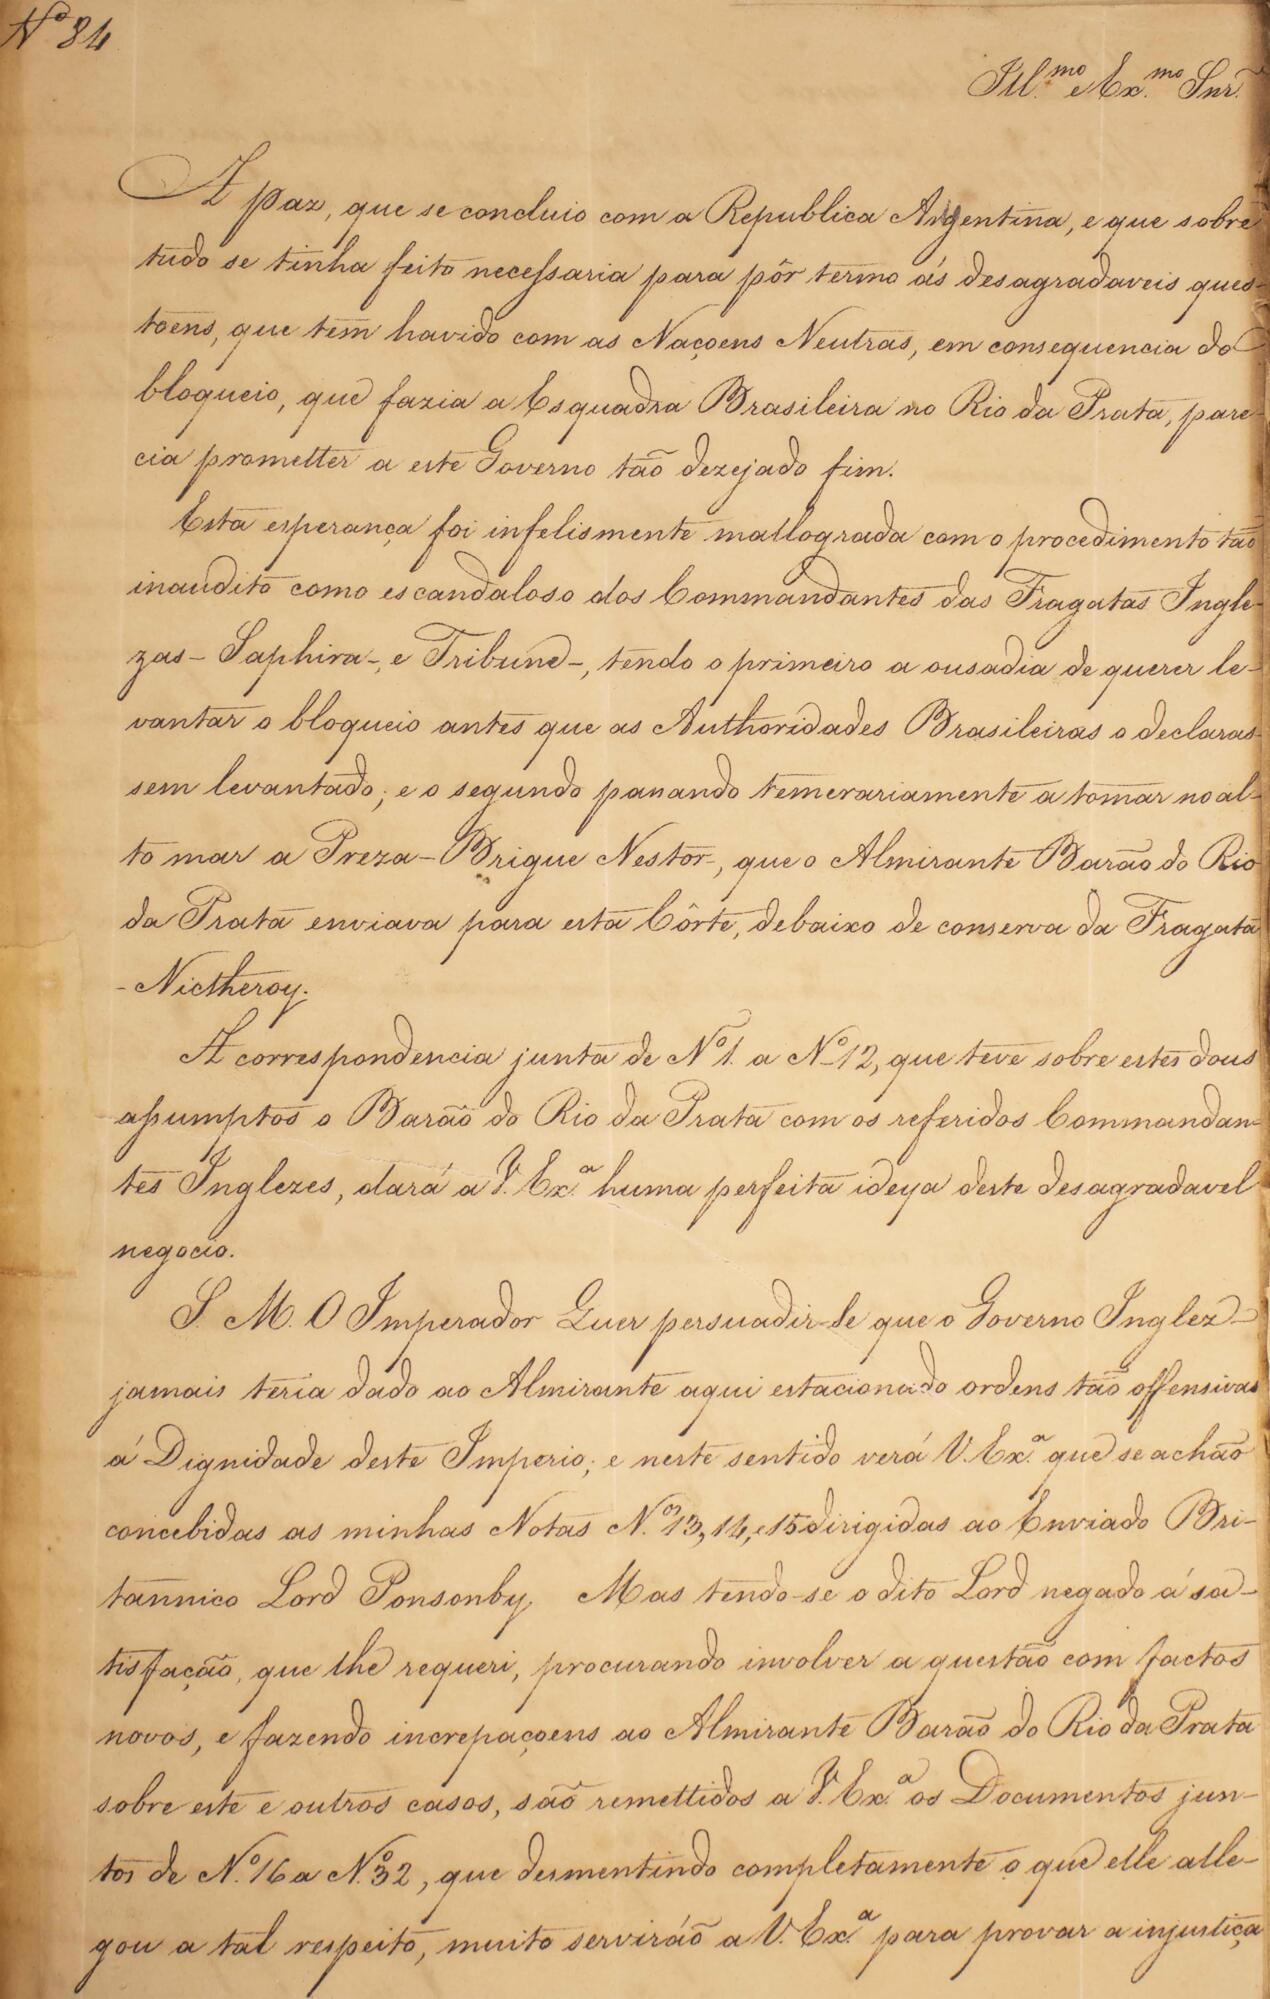 Nº 84
Ill.mo e Ex.mo Snr.
A paz, que se concluio com a Republica Argentina, e que sobre
tudo se tinha feito necessaria para pôr termo ás desagradaveis ques-
toens, que tem havido com as Naçoens Neutras, em consequencia do
bloqueio, que fazia a Esquadra Brasileira no Rio da Prata, pare-
cia prometter a este Governo tão dezejado fim.
Esta esperança foi infelismente mallograda com o procedimento tão
inaudito como escandaloso dos Commandantes das Fragatas Ingle-
zas – Saphira –, e Tribune –, tendo o primeiro a ousadia de querer le-
vantar o bloqueio antes que as Authoridades Brasileiras o declaras-
sem levantado; e o segundo passando temerariamente a tomar no al-
to mar a Preza – Brigue Nestor –, que o Almirante Barão do Rio
da Prata enviava para esta Côrte, debaixo de conserva da Fragata
– Nictheroy.
A correspondencia junta de Nº 1. a Nº 12, que teve sobre estes dous
assumptos o Barão do Rio da Prata com os referidos Commandan-
tes Inglezes, dará a V. Ex.ª huma perfeita ideya deste desagradavel
negocio.
S. M. O Imperador Quer persuadir-Se que o Governo Inglez
jamais teria dado ao Almirante aqui estacionado ordens tão offensivas
á Dignidade deste Imperio; e neste sentido verá V. Ex.ª que se achão
concebidas as minhas Notas N.os 13, 14, e 15 dirigidas ao Enviado Bri-
tannico Lord Ponsonby. Mas tendo-se o dito Lord negado á sa-
tisfação, que lhe requeri, procurando involver a questão com factos
novos, e fazendo increpaçoens ao Almirante Barão do Rio da Prata
sobre este e outros casos, são remettidos a V. Ex.ª os Documentos jun-
tos de Nº 16 a Nº 32, que desmentindo completamente o que elle alle-
gou a tal respeito, muito serviráõ a V. Ex.ª para provar a injustiça